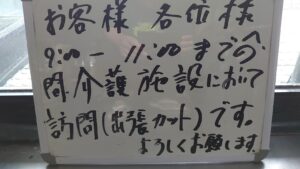 お客様 各位様
9:00ー 11:00までの
間、介護施設において
訪問(出張カット)です。
よろしくお願します。